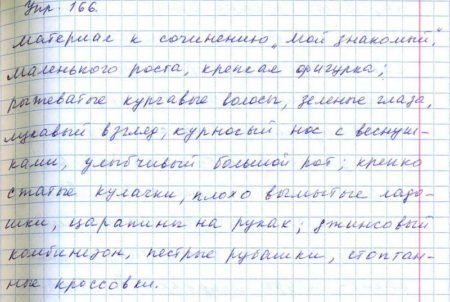 Упр. 166.
Материал к сочинению „Мой знакомый“.
Маленького роста, крепкая фигурка;
рыжеватые курчавые волосы, зеленые глаза,
лукавый взгляд; курносый нос с веснуш-
ками, улыбчивый большой рот; крепко
сжатые кулачки, плохо вымытые ладо-
шки, царапины на руках; джинсовый
комбинезон, пестрые рубашки, стоптан-
ные кроссовки.